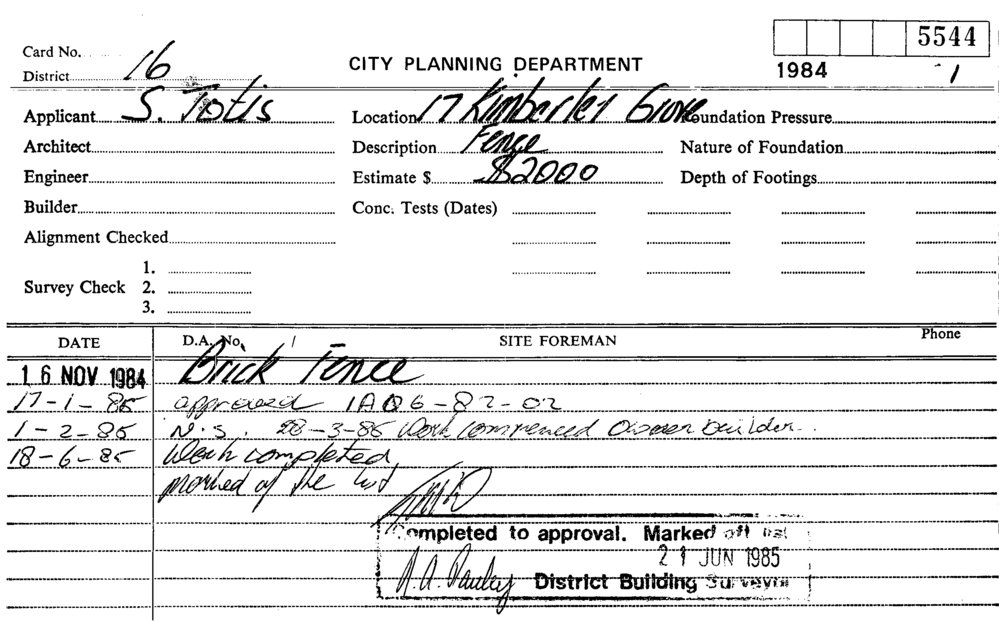 5544
Card No. 16
District
CITY PLANNING DEPARTMENT
1984 1
Applicant S. Totis Location 17 Kimberley Grove Foundation Pressure
Architect Description Fence Nature of Foundation
Engineer Estimate $ $2000 Depth of Footings
Builder Conc. Tests (Dates)
Alignment Checked
1.
Survey Check 2.
3.
DATE D.A. No. SITE FOREMAN Phone
16 NOV 1984 Brick Fence
17-1-85 approved
1-2-85 N.S. 28-3-85 Work commenced Owner builder.
18-6-85 Work completed
marked of the list
Completed to approval. Marked off list
21 JUN 1985
District Building Surveyor